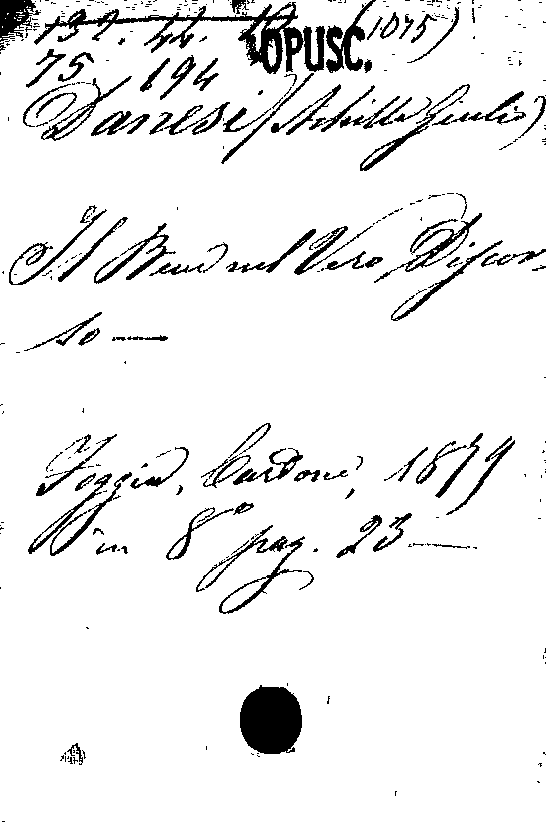 132. 44. (1075)
OPUSC.
75 194
Danesi (Achille Giulio)
Il Bene nel Vero Discor-
so —
Foggia, Cardone, 1879
in 8° pag. 23 —